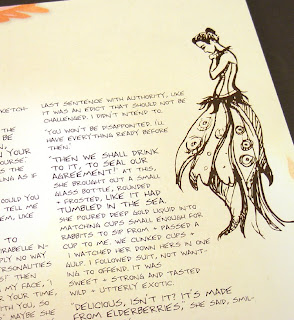 KETCH-
THE
BE
N
YOUR
OURSE
S THE
LING AS IF
OULD YOU
TELL ME
EM, LIKE
TO
ARABELLE IN-
PLY NO WAY
ERSONALITIES
S! THEN
MY FACE, I
R YOUR TIME,
ITH YOU, SO
MAYBE SHE
LAST SENTENCE WITH AUTHORITY, LIKE
IT WAS AN EDICT THAT SHOULD NOT BE
CHALLENGED. I DIDN'T INTEND TO.
"YOU WON'T BE DISAPPOINTED. I'LL
HAVE EVERYTHING READY BEFORE
THEN.
"THEN WE SHALL DRINK
TO IT, TO SEAL OUR
AGREEMENT!" AT THIS,
SHE BROUGHT OUT A SMALL
GLASS BOTTLE, ROUNDED
+ FROSTED, LIKE IT HAD
TUMBLED IN THE SEA.
SHE POURED DEEP GOLD LIQUID INTO
MATCHING CUPS SMALL ENOUGH FOR
RABBITS TO SIP FROM + PASSED A
CUP TO ME. WE CLINKED CUPS +
I WATCHED HER DOWN HERS IN ONE
GULP. I FOLLOWED SUIT, NOT WANT-
ING TO OFFEND. IT WAS
SWEET + STRONG AND TASTED
WILD + UTTERLY EXOTIC.
"DELICIOUS, ISN'T IT? IT'S MADE
FROM ELDERBERRIES," SHE SAID, SMIL-